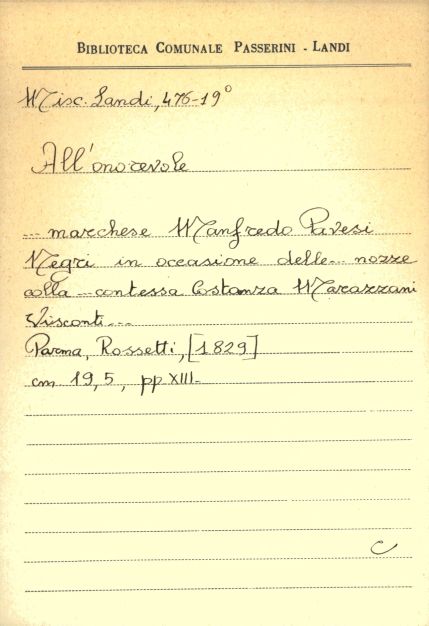 BIBLIOTECA COMUNALE PASSERINI - LANDI
Misc. Landi, 476-19°
All'onorevole
... marchese Manfredo Pavesi
Negri in occasione delle... nozze
colla ... contessa Costanza Marazzani
Visconti...
Parma, Rossetti, [1829]
cm 19,5, pp XIII.
C